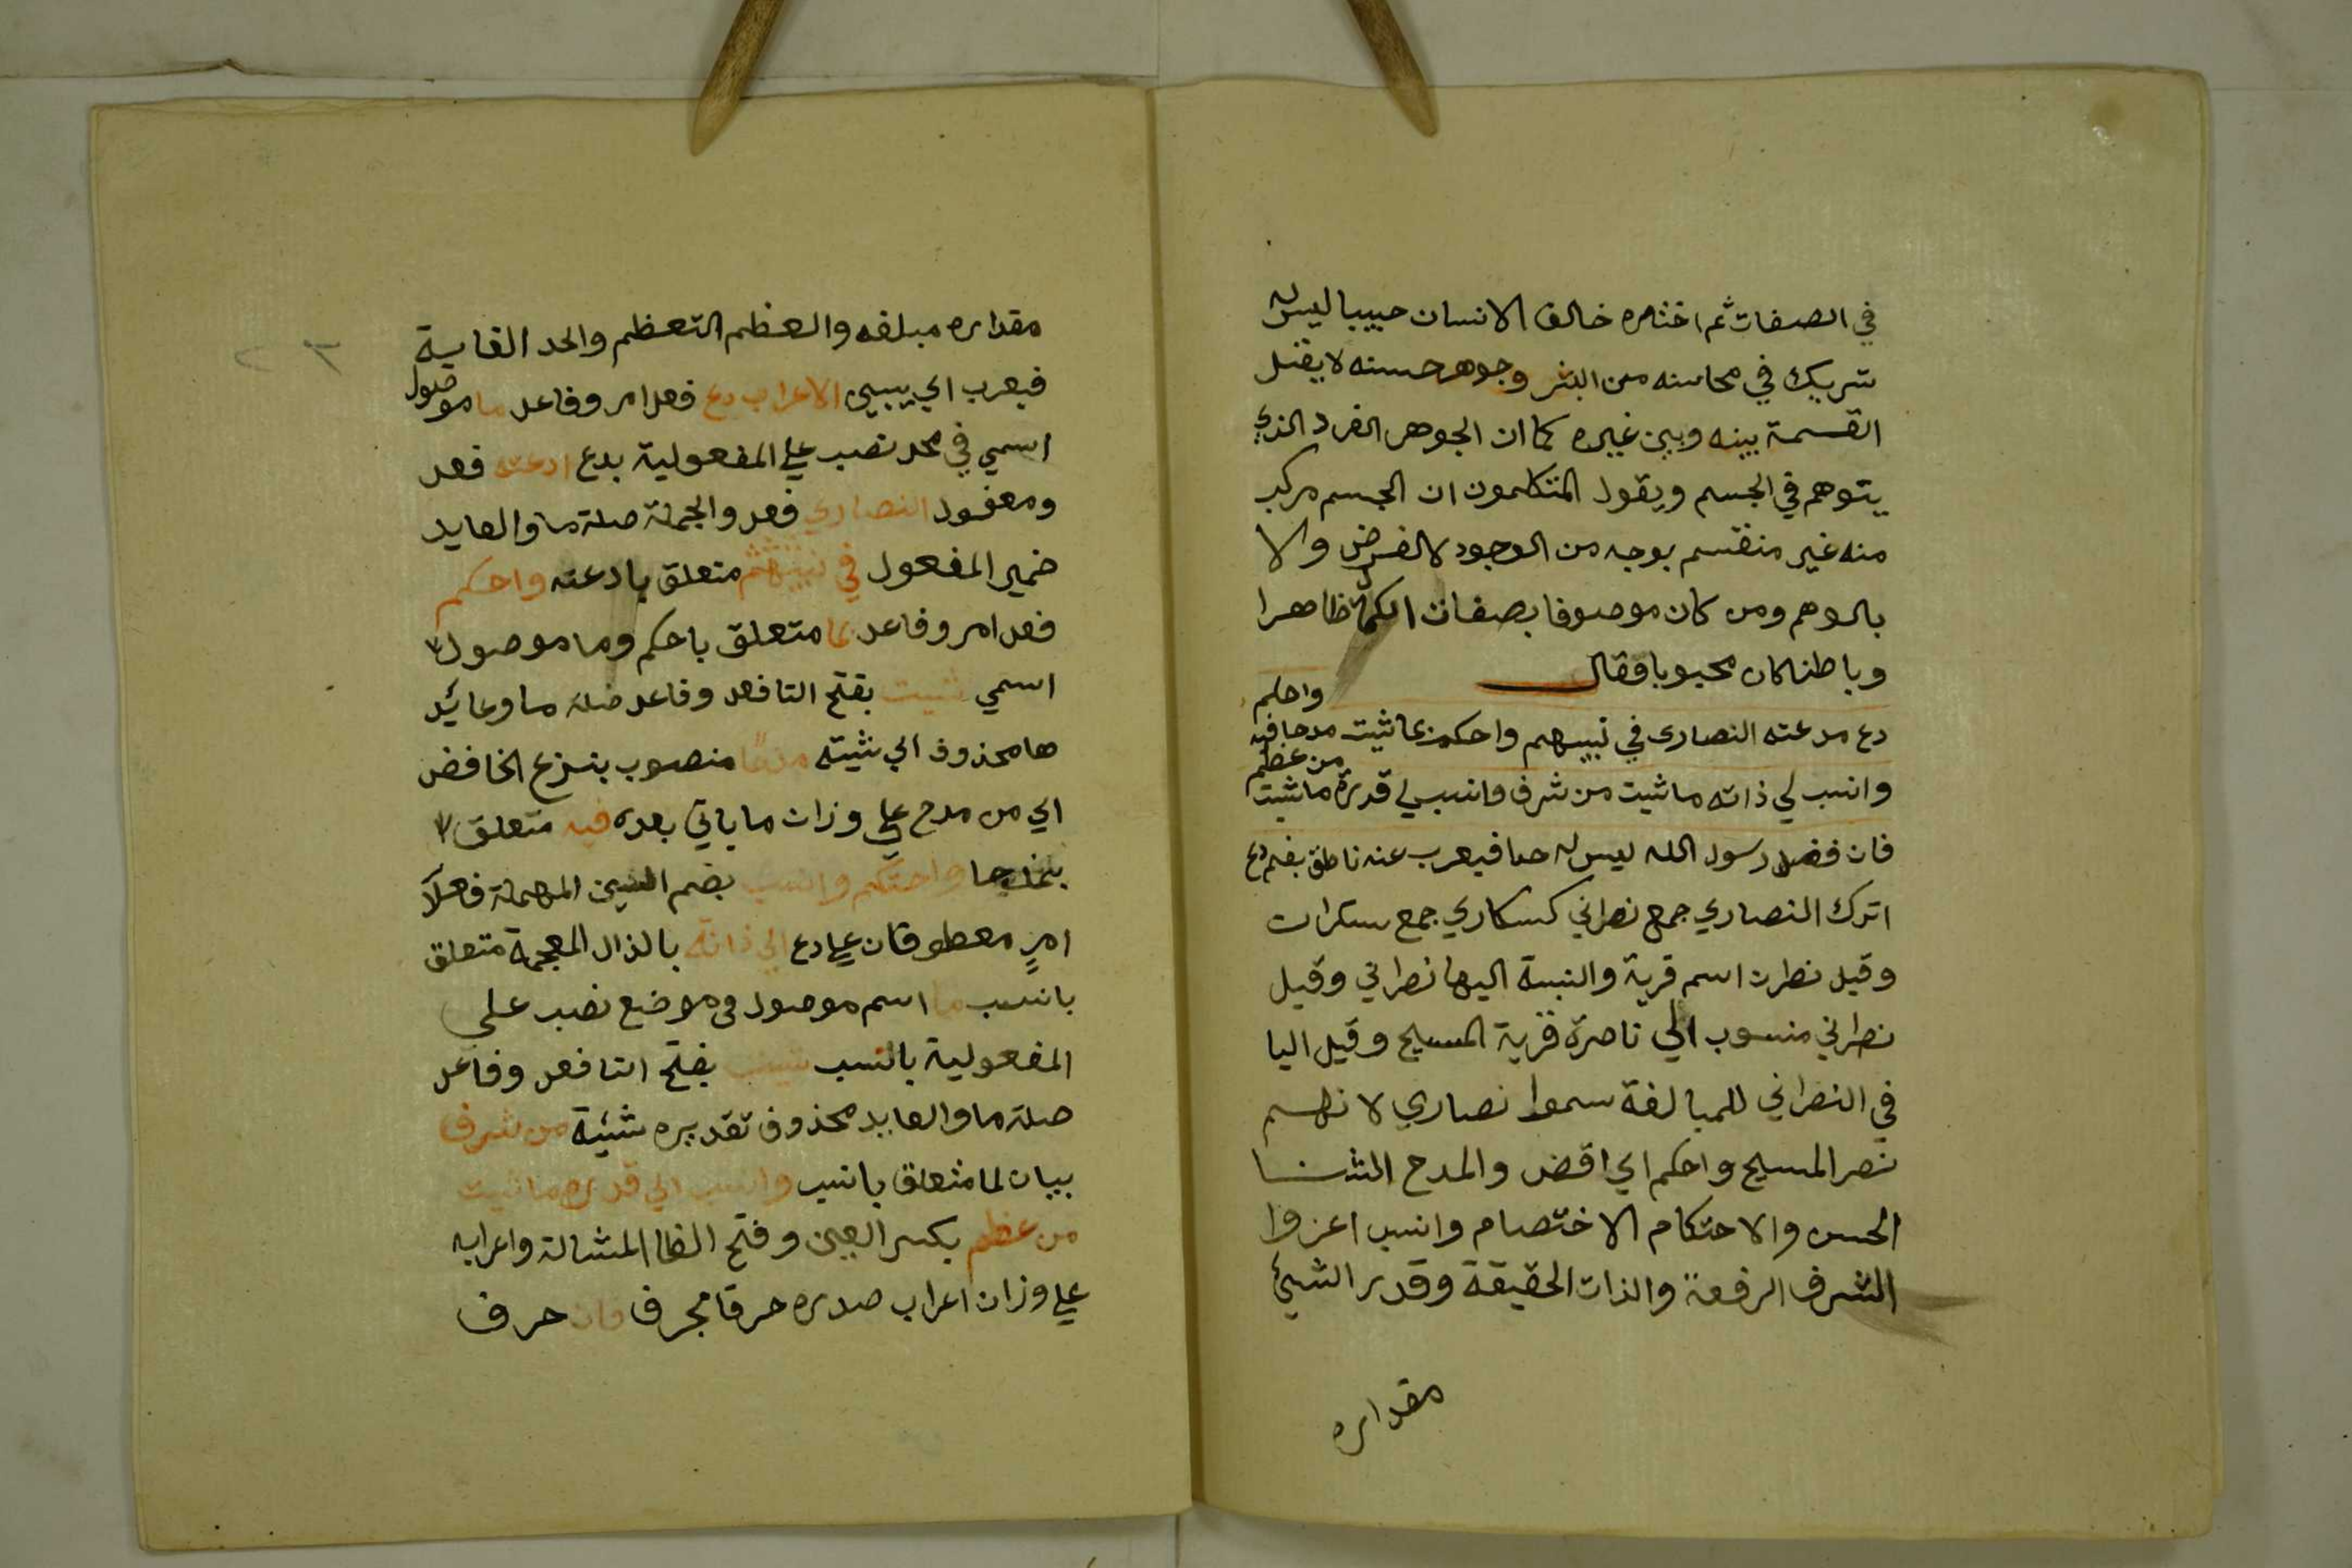 في الصفات ثم اختاره خالق الانسان حبيبا ليس له
شريك في محاسنه من البشر وجوهر حسنه لا يقبل
القسمة بينه وبين غيره كما ان الجوهر الفرد الذي
يتوهم في الجسم ويقول المتكلمون ان الجسم مركب
منه غير منقسم بوجه من الوجود لا الفرض والا
بالوهم ومن كان موصوفا بصفات الكمال ظاهرا
وباطنا كان محبوبا فقال
دع مدعته النصارى في نبيهم واحكم بما شيت مدحا فيه واحكم
وانسب لي ذاته ما شيت من شرف وانسب لي قدره ما شيت من عظم
فان فضل رسول الله ليس له حدا فيعرب عنه ناطق بفم دع
اترك النصاري جمع نصراني كسكاري جمع سكران
وقيل نصران اسم قرية والنسبة اليها نصراني وقيل
نصراني منسوب الي ناصرة قرية المسيح وقيل اليا
في النصراني للمبالغة سموا نصاري لانهم
نصر المسيح واحكم اي اقض والمدح الثنا
الحسن والاحتكام الاختصام وانسب اعزوا
الشرف الرفعة والذات الحقيقة وقدر الشيئ
مقداره
مقداره مبلغه والعظم التعظم والحد الغاية
فيعرب اي يبين الاعراب دع فعل امر وفاعل ما موصول
اسمي في محل نصب علي المفعولية بدع ادعته فعل
ومفعول النصاري فعل والجملة صلة ما والعايد
ضمير المفعول في نبيهم متعلق بادعته واحكم
فعل امر وفاعل بما متعلق باحكم وما موصول
اسمي شيت بفتح التا فعل وفاعل صلة ما وعائد
ها محذوف اي شيته مدحا منصوب بنزع الخافض
اي من مدح علي وزان ما ياتي بعده فيه متعلق
بمدحا واحتكم وانسب بضم السين المهملة فعلا
امر معطوفان علي دع الي ذاته بالذال المعجمة متعلق
بانسب ما اسم موصول في موضع نصب علي
المفعولية بانسب شيت بفتح التا فعل وفاعل
صلة ما والعايد محذوف تقديره شئية من شرف
بيان لما متعلق بانسب وانسب الي قدره ما شيت
من عظم بكسر العين وفتح الظا المشالة واعرابه
علي وزان اعراب صدره حرفا بحرف فان حرف